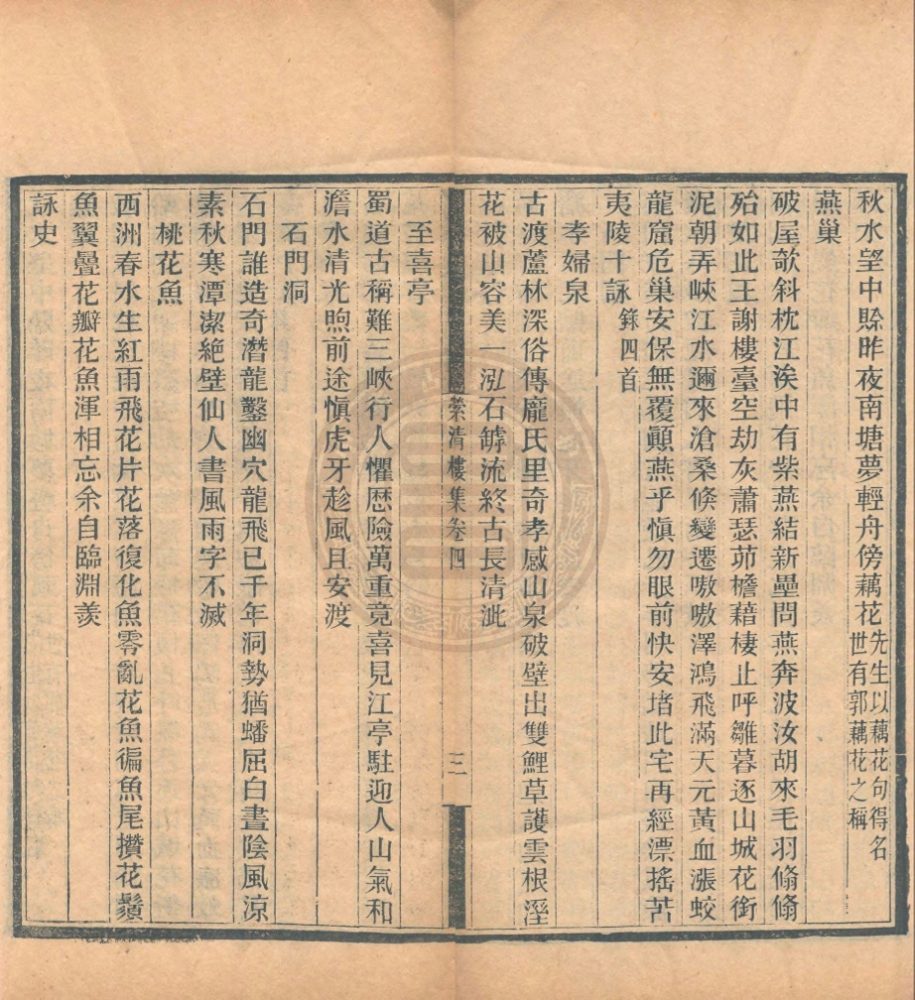 秋水望中賒昨夜南塘夢輕舟傍藕花先生以藕花句得名世有郭藕花之稱
燕巢
破屋欹斜枕江涘中有紫燕結新壘問燕奔波汝胡來毛羽翛翛
殆如此王謝樓臺空劫灰蕭瑟茆檐藉棲止呼雛暮逐山城花銜
泥朝弄峽江水邇來滄桑倏變遷嗷嗷澤鴻飛滿天元黃血漲蛟
龍窟危巢安保無覆顚燕乎愼勿眼前快安堵此宅再經漂搖苦
夷陵十詠錄四首
孝婦泉
古渡蘆林深俗傳龐氏里奇孝感山泉破壁出雙鯉草護雲根溼
花被山容美一泓石罅流終古長清泚
縈清樓集卷四
三
至喜亭
蜀道古稱難三峽行人懼歷險萬重竟喜見江亭駐迎人山氣和
澹水清光煦前途愼虎牙趁風且安渡
石門洞
石門誰造奇潛龍鑿幽穴龍飛已千年洞勢猶蟠屈白晝陰風涼
素秋寒潭潔絶壁仙人書風雨字不滅
桃花魚
西洲春水生紅雨飛花片花落復化魚零亂花魚徧魚尾攢花鬚
魚翼疊花瓣花魚渾相忘余自臨淵羨
詠史